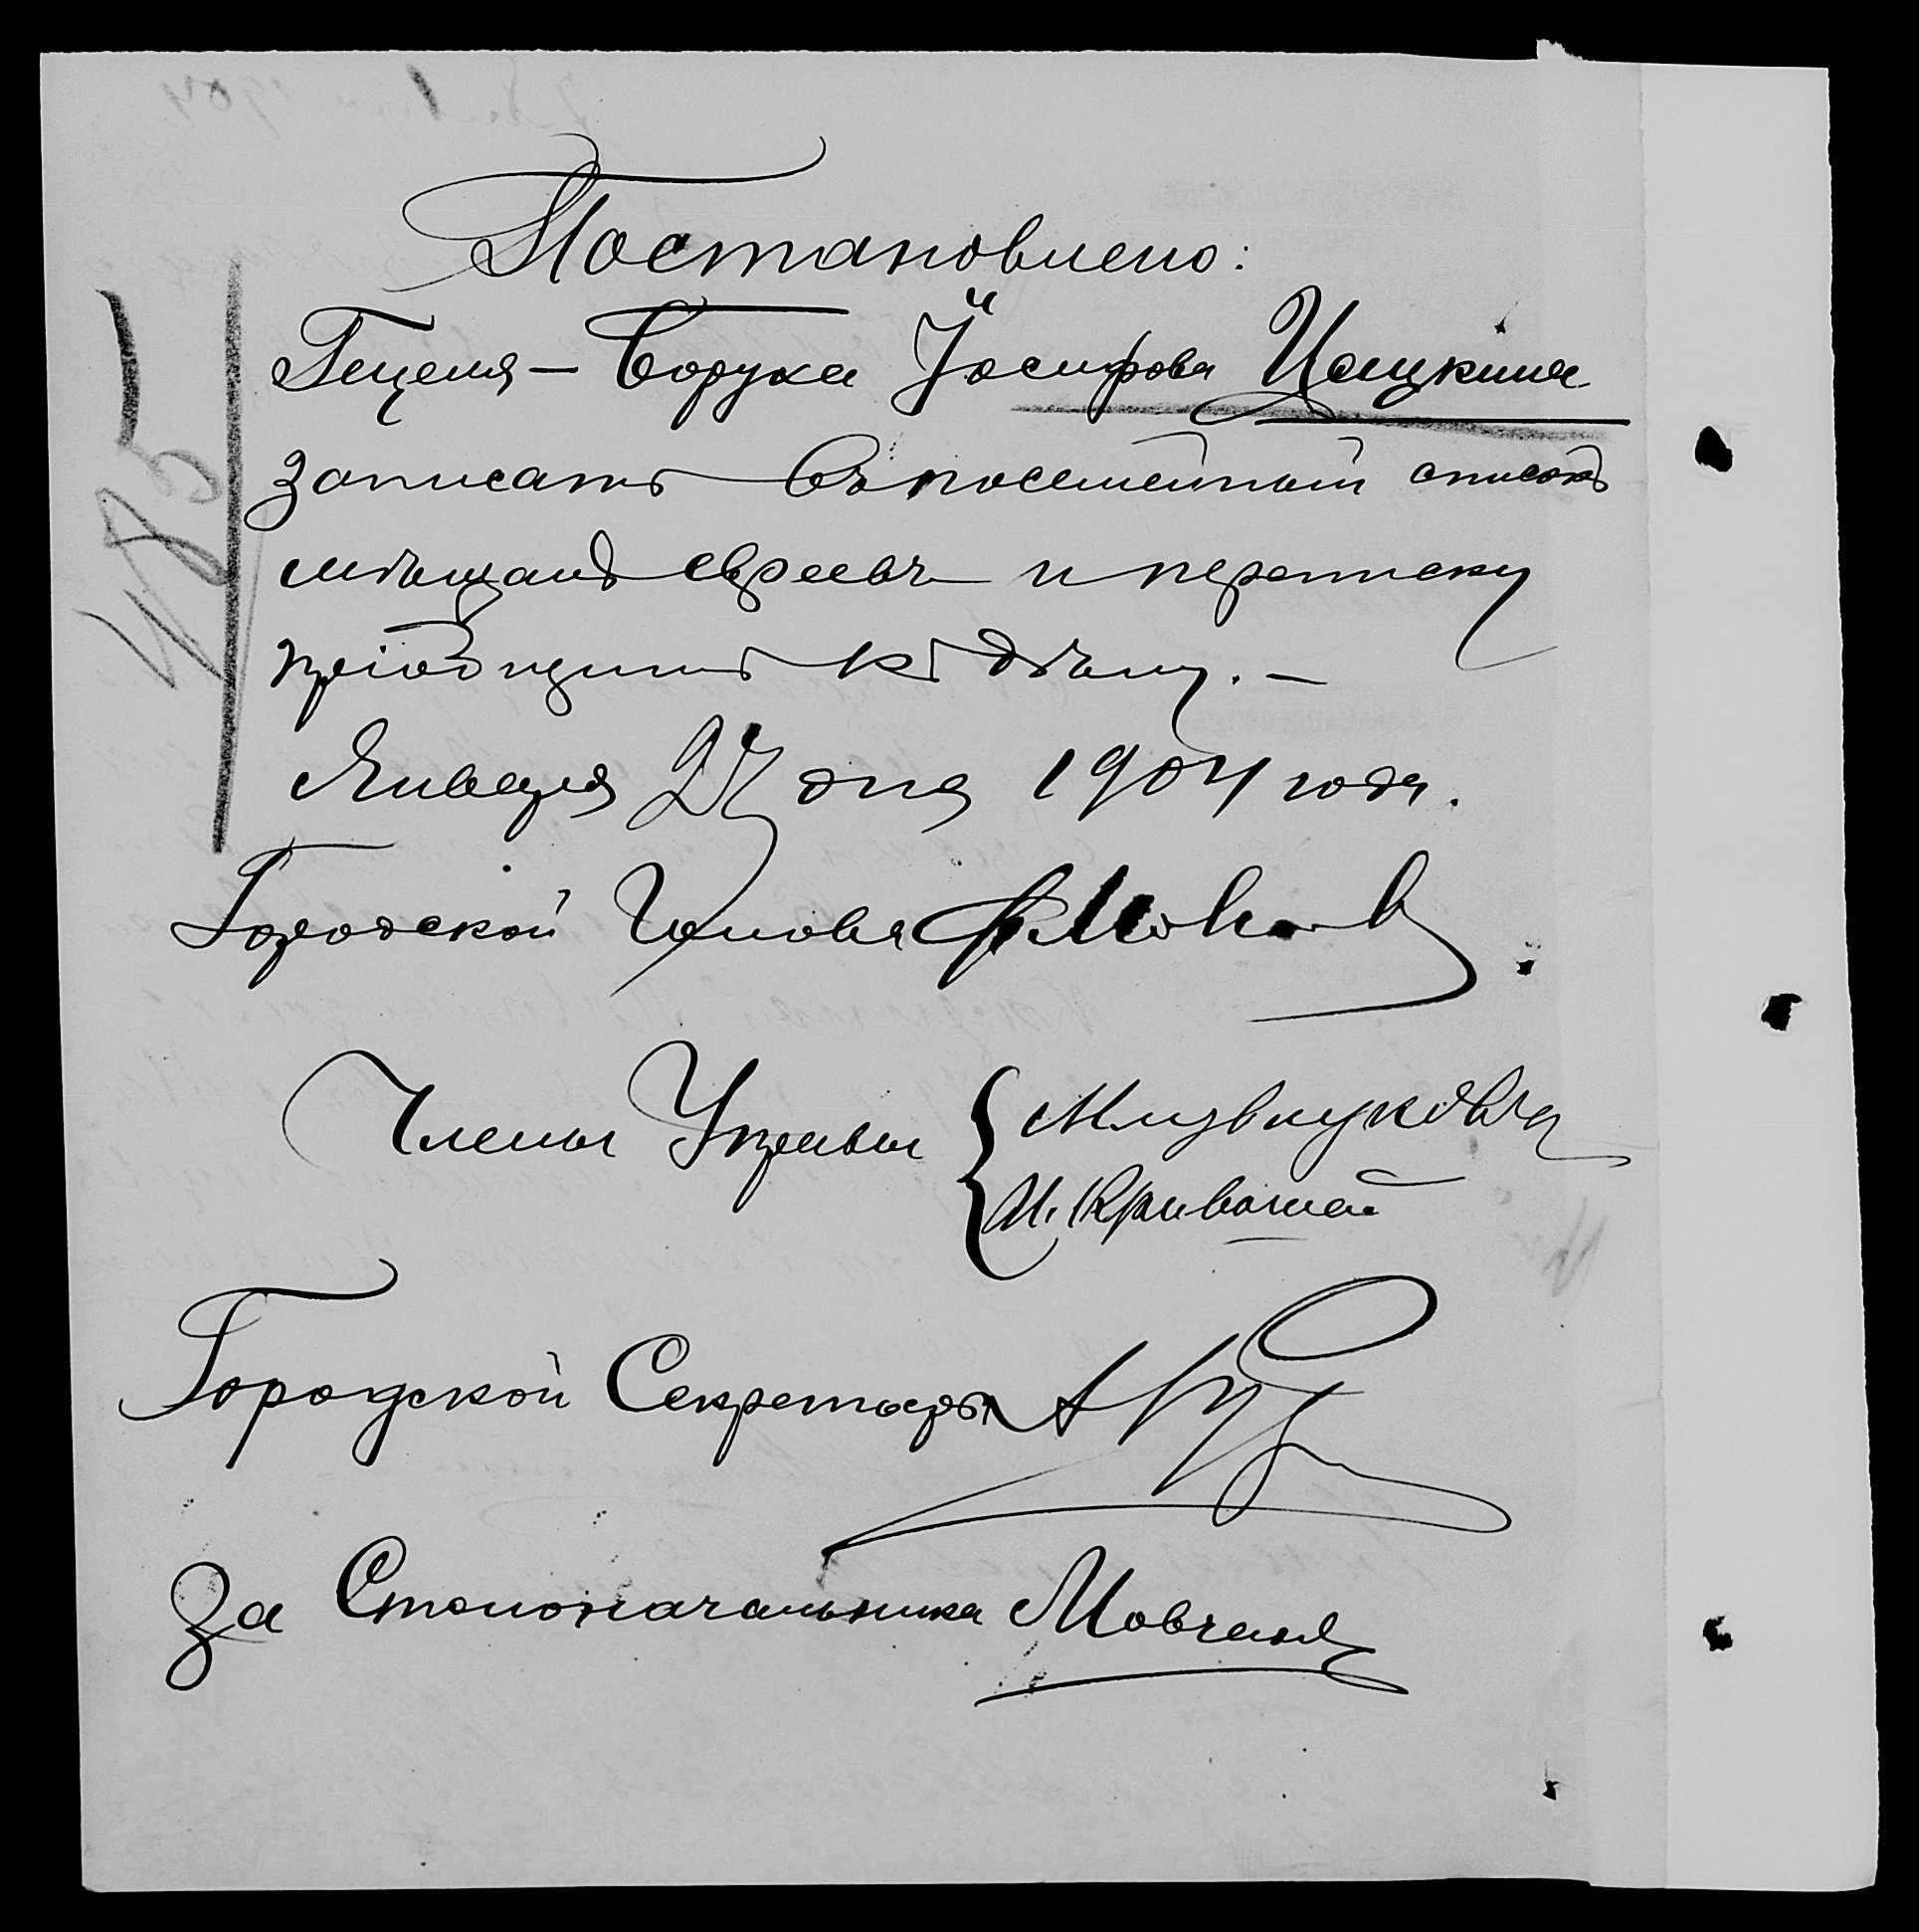 Постановлено:
Гецеля — Боруха Іосифова Цацкина
записать въ посемейный списокъ
мѣщанъ евреевъ и переписку
пріобщить къ дѣлу. —
Января 27 дня 1904 года.
Городской Голова
Члены Управы
И. Кривошей
Городской Секретарь
За Столоначальника Мовчанъ